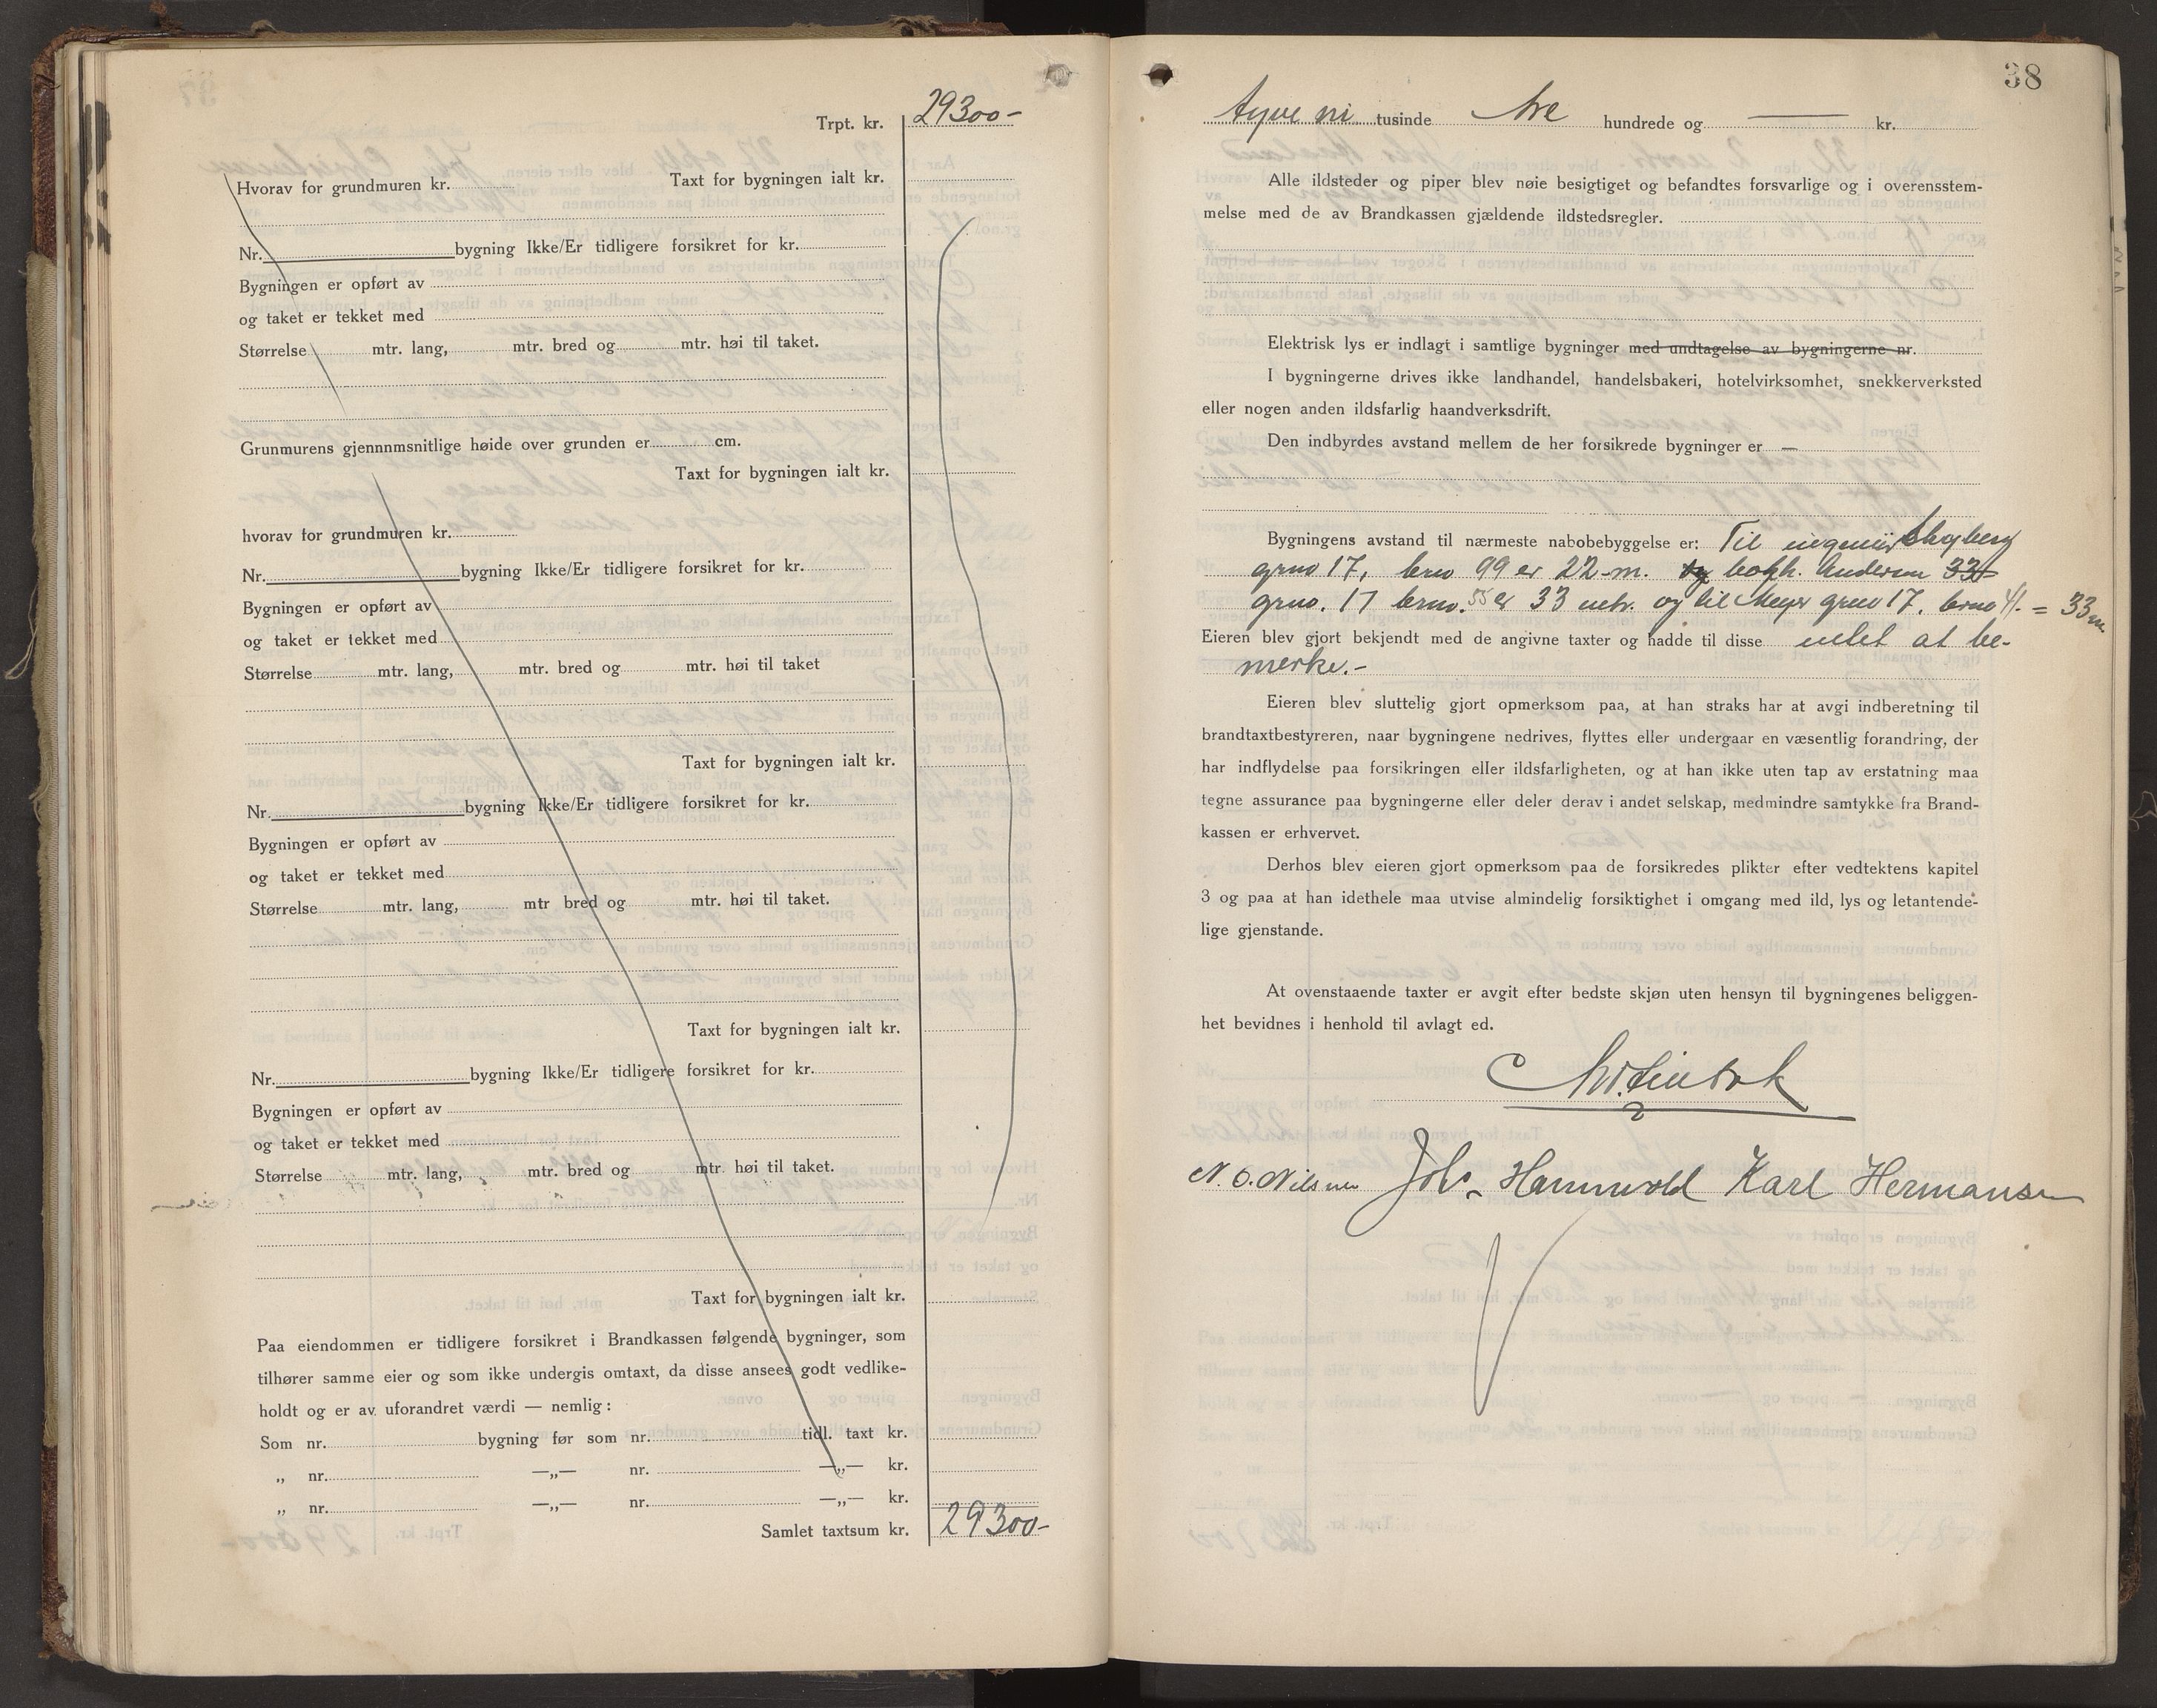 Trpt. kr. 29300-
Hvorav for grundmuren kr. Taxt for bygningen ialt kr.
Nr. bygning Ikke/Er tidligere forsikret for kr.
Bygningen er opført av
og taket er tekket med
Størrelse mtr. lang, mtr. bred og mtr. høi til taket.
Grunmurens gjennnmsnitlige høide over grunden er cm.
Taxt for bygningen ialt kr.
hvorav for grundmuren kr.
Nr. bygning Ikke/Er tidligere forsikret for kr.
Bygningen er opført av
og taket er tekket med
Størrelse mtr. lang, mtr. bred og mtr. høi til taket
Taxt for bygningen ialt kr.
Nr. bygning Ikke/Er tidligere forsikret for kr.
Bygningen er opført av
og taket er tekket med
Størrelse mtr. lang, mtr bred og mtr. høi til taket.
Taxt for bygningen ialt kr.
Nr. bygning Ikke/Er tidligere forsikret for kr.
Bygningen er opført av
og taket er tekket med
Størrelse mtr. lang, mtr. bred og mtr. høi til taket.
Taxt for bygningen ialt kr.
Paa eiendommen er tidligere forsikret i Brandkassen følgende bygninger, som
tilhører samme eier og som ikke undergis omtaxt, da disse ansees godt vedlike-
holdt og er av uforandret værdi — nemlig:
Som nr. bygning før som nr. tidl. taxt kr.
„ nr. —„— nr. —„— kr.
„ nr. —„— nr. —„— kr.
Samlet taxtsum kr. 29300-
38
tyve ni tusinde tre hundrede og — kr.
Alle ildsteder og piper blev nøie besigtiget og befandtes forsvarlige og i overensstem-
melse med de av Brandkassen gjældende ildstedsregler.
Elektrisk lys er indlagt i samtlige bygninger med undtagelse av bygningerne nr.
I bygningerne drives ikke landhandel, handelsbakeri, hotelvirksomhet, snekkerverksted
eller nogen anden ildsfarlig haandverksdrift.
Den indbyrdes avstand mellem de her forsikrede bygninger er —
Bygningens avstand til nærmeste nabobebyggelse er: Til ingeniør
grno 17, brno 99 er 22 m. bokh. Andersen 33
grno. 17 brno. 55 er 33 mtr. og til Meyer grno 17. brno 41. = 33 m
Eieren blev gjort bekjendt med de angivne taxter og hadde til disse intet at be-
merke.-
Eieren blev sluttelig gjort opmerksom paa, at han straks har at avgi indberetning til
brandtaxtbestyreren, naar bygningene nedrives, flyttes eller undergaar en væsentlig forandring, der
har indflydelse paa forsikringen eller ildsfarligheten, og at han ikke uten tap av erstatning maa
tegne assurance paa bygningerne eller deler derav i andet selskap, medmindre samtykke fra Brand-
kassen er erhvervet.
Derhos blev eieren gjort opmerksom paa de forsikredes plikter efter vedtektens kapitel
3 og paa at han idethele maa utvise almindelig forsiktighet i omgang med ild, lys og letantende-
lige gjenstande.
At ovenstaaende taxter er avgit efter bedste skjøn uten hensyn til bygningenes beliggen-
het bevidnes i henhold til avlagt ed.
N. O. Nilsen Joh. Hamwold Karl Hermansen